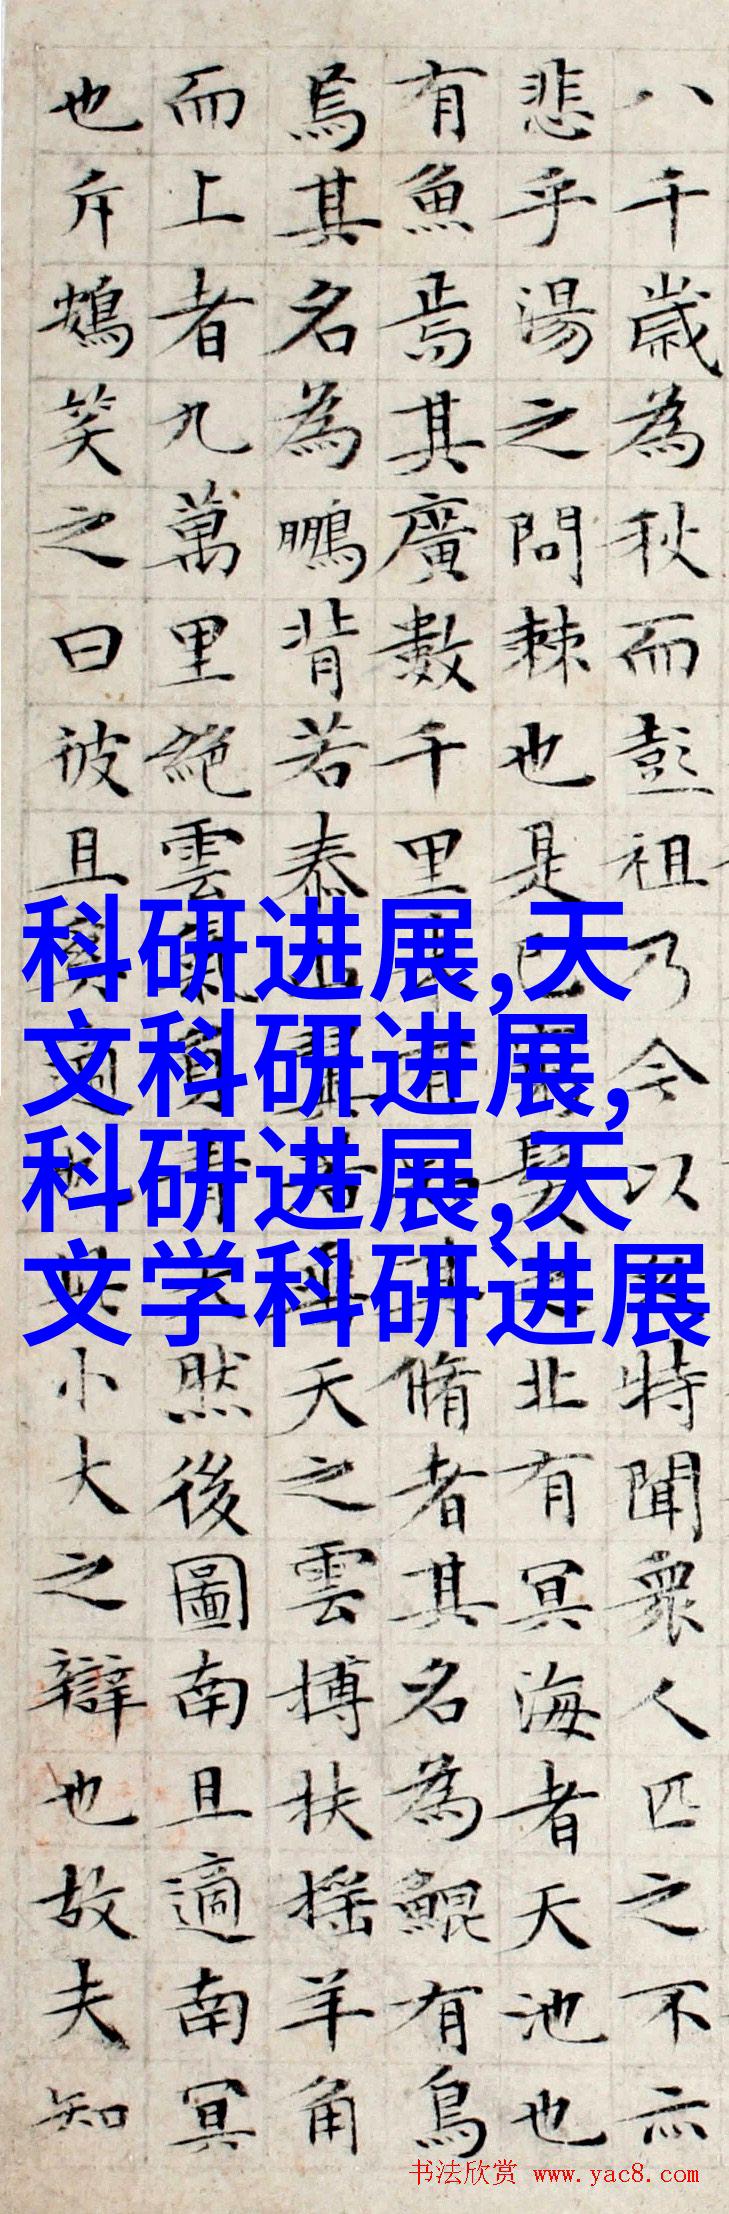 八千歲為秋而彭祖乃今以特聞衆人匹之不亦
悲乎湯之問棘也是已髮北有冥海者天池也
有魚焉其廣數千里未有知其脩者其名為鯤有鳥
焉其名為鵬背若泰山翼若垂天之雲搏扶搖羊角
而上者九萬里絕雲氣負青天然後圖南且適南冥
也斥鴳笑之曰彼且奚適也小大之辯也故夫知
科研进展,天
文科研进展,
科研进展,天
文学科研进展
书法欣赏 www.yac8.com